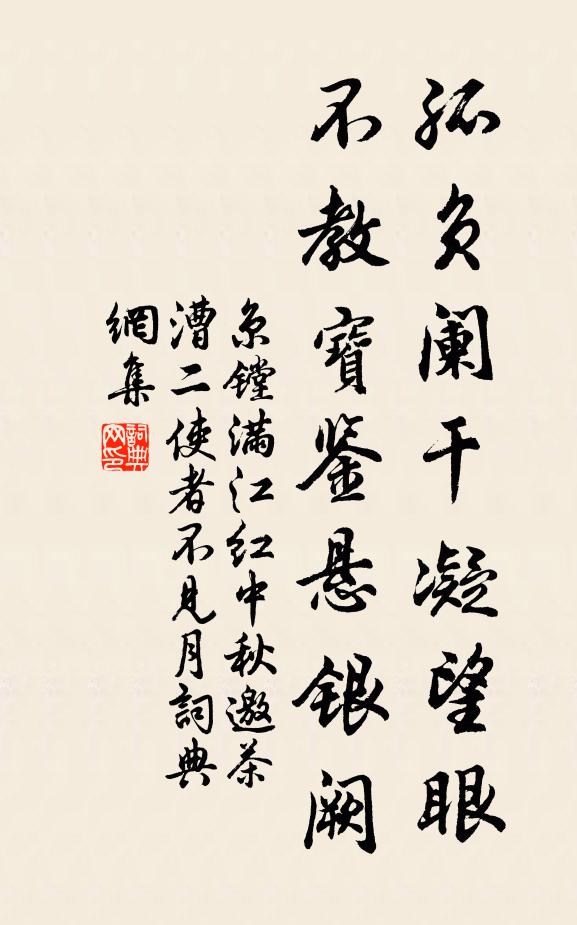 孤负阑干凝望眼
不教寶鉴悬银阙
京镗满江红中秋邀茶
漕二使者不见月詞典
網集
詞典網印